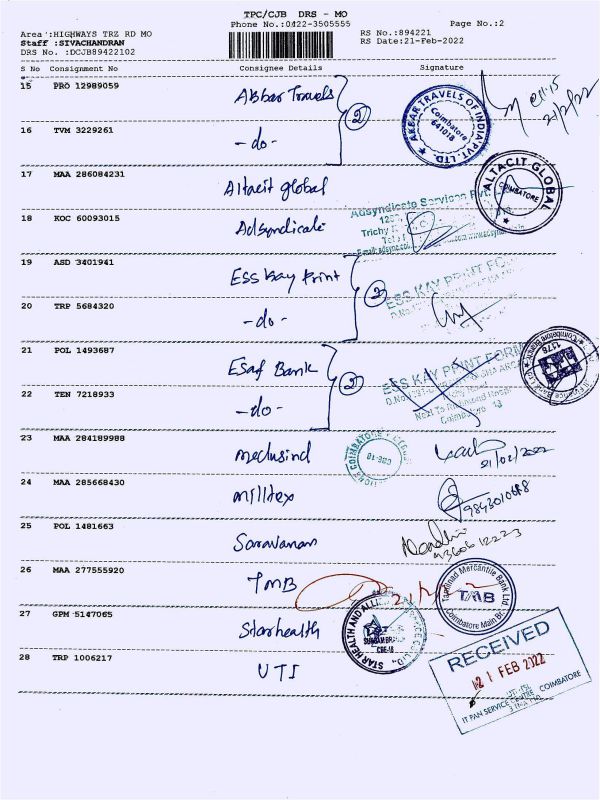 TPC/CJB DRS - MO
Phone No.:0422-3505555
Page No.:2
Area :HIGHWAYS TRZ RD MO
Staff :SIVACHANDRAN
DRS No. :DCJB89422102
RS No.:894221
RS Date:21-Feb-2022
S No Consignment No Consignee Details Signature
15 PRO 12989059 Akbar Travels
2
AKBAR TRAVELS OF INDIA PVT. LTD.
Coimbatore
641018
21/2/22
16 TVM 3229261 -do-
17 MAA 286084231 Altacit global
ALTACIT GLOBAL
COIMBATORE
18 KOC 60093015 Adsyndicate
Adsyndicate Services Pvt.
Trichy
19 ASD 3401941 Ess kay Print
2
ESS KAY PRINT FOR
20 TRP 5684320 -do-
21 POL 1493687 Esaf Bank
2
ESS KAY PRINT FORM
22 TEN 7218933 -do-
Coimbatore
23 MAA 284189988 medusind
21/02/2022
24 MAA 285668430 milltex
25 POL 1481663 Saravanan
9360612223
26 MAA 277555920 TMB
Tamilnad Mercantile Bank Ltd.
TMB
Coimbatore Main Br.
27 GPM 5147065 Starhealth
STAR HEALTH AND ALLIED
CBE-18
28 TRP 1006217 UTI
RECEIVED
21 FEB 2022
IT PAN SERVICE CENTRE COIMBATORE